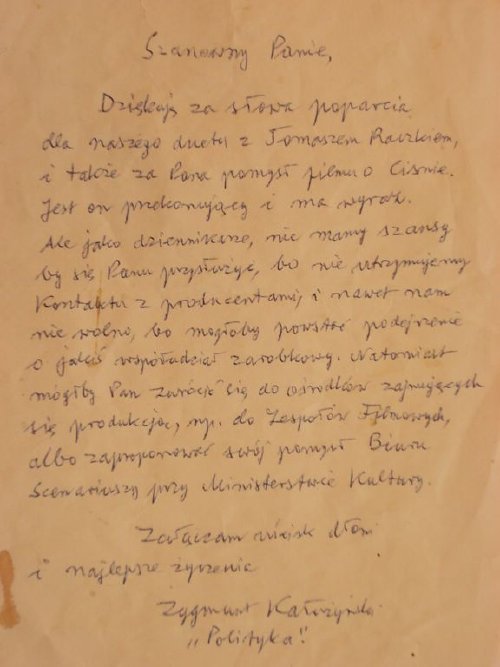 Szanowny Panie,
Dziękuję za słowa poparcia
dla naszego duetu z Tomaszem Raczkiem,
i także za Pana pomysł filmu o Cisnie.
Jest on przekonujący i ma wyraz.
Ale jako dziennikarze, nie mamy szansy
by się Panu przysłużyć, bo nie utrzymujemy
kontaktu z producentami, i nawet nam
nie wolno, bo mogłoby powstać podejrzenie
o jakiś współudział zarobkowy. Natomiast
mógłby Pan zwrócić się do ośrodków zajmujących
się produkcją, np. do Zespołów Filmowych,
albo zaproponować swój pomysł Biuru
Scenariuszy przy Ministerstwie Kultury.
Załączam uścisk dłoni
i najlepsze życzenia
Zygmunt Kałużyński
„Polityka"